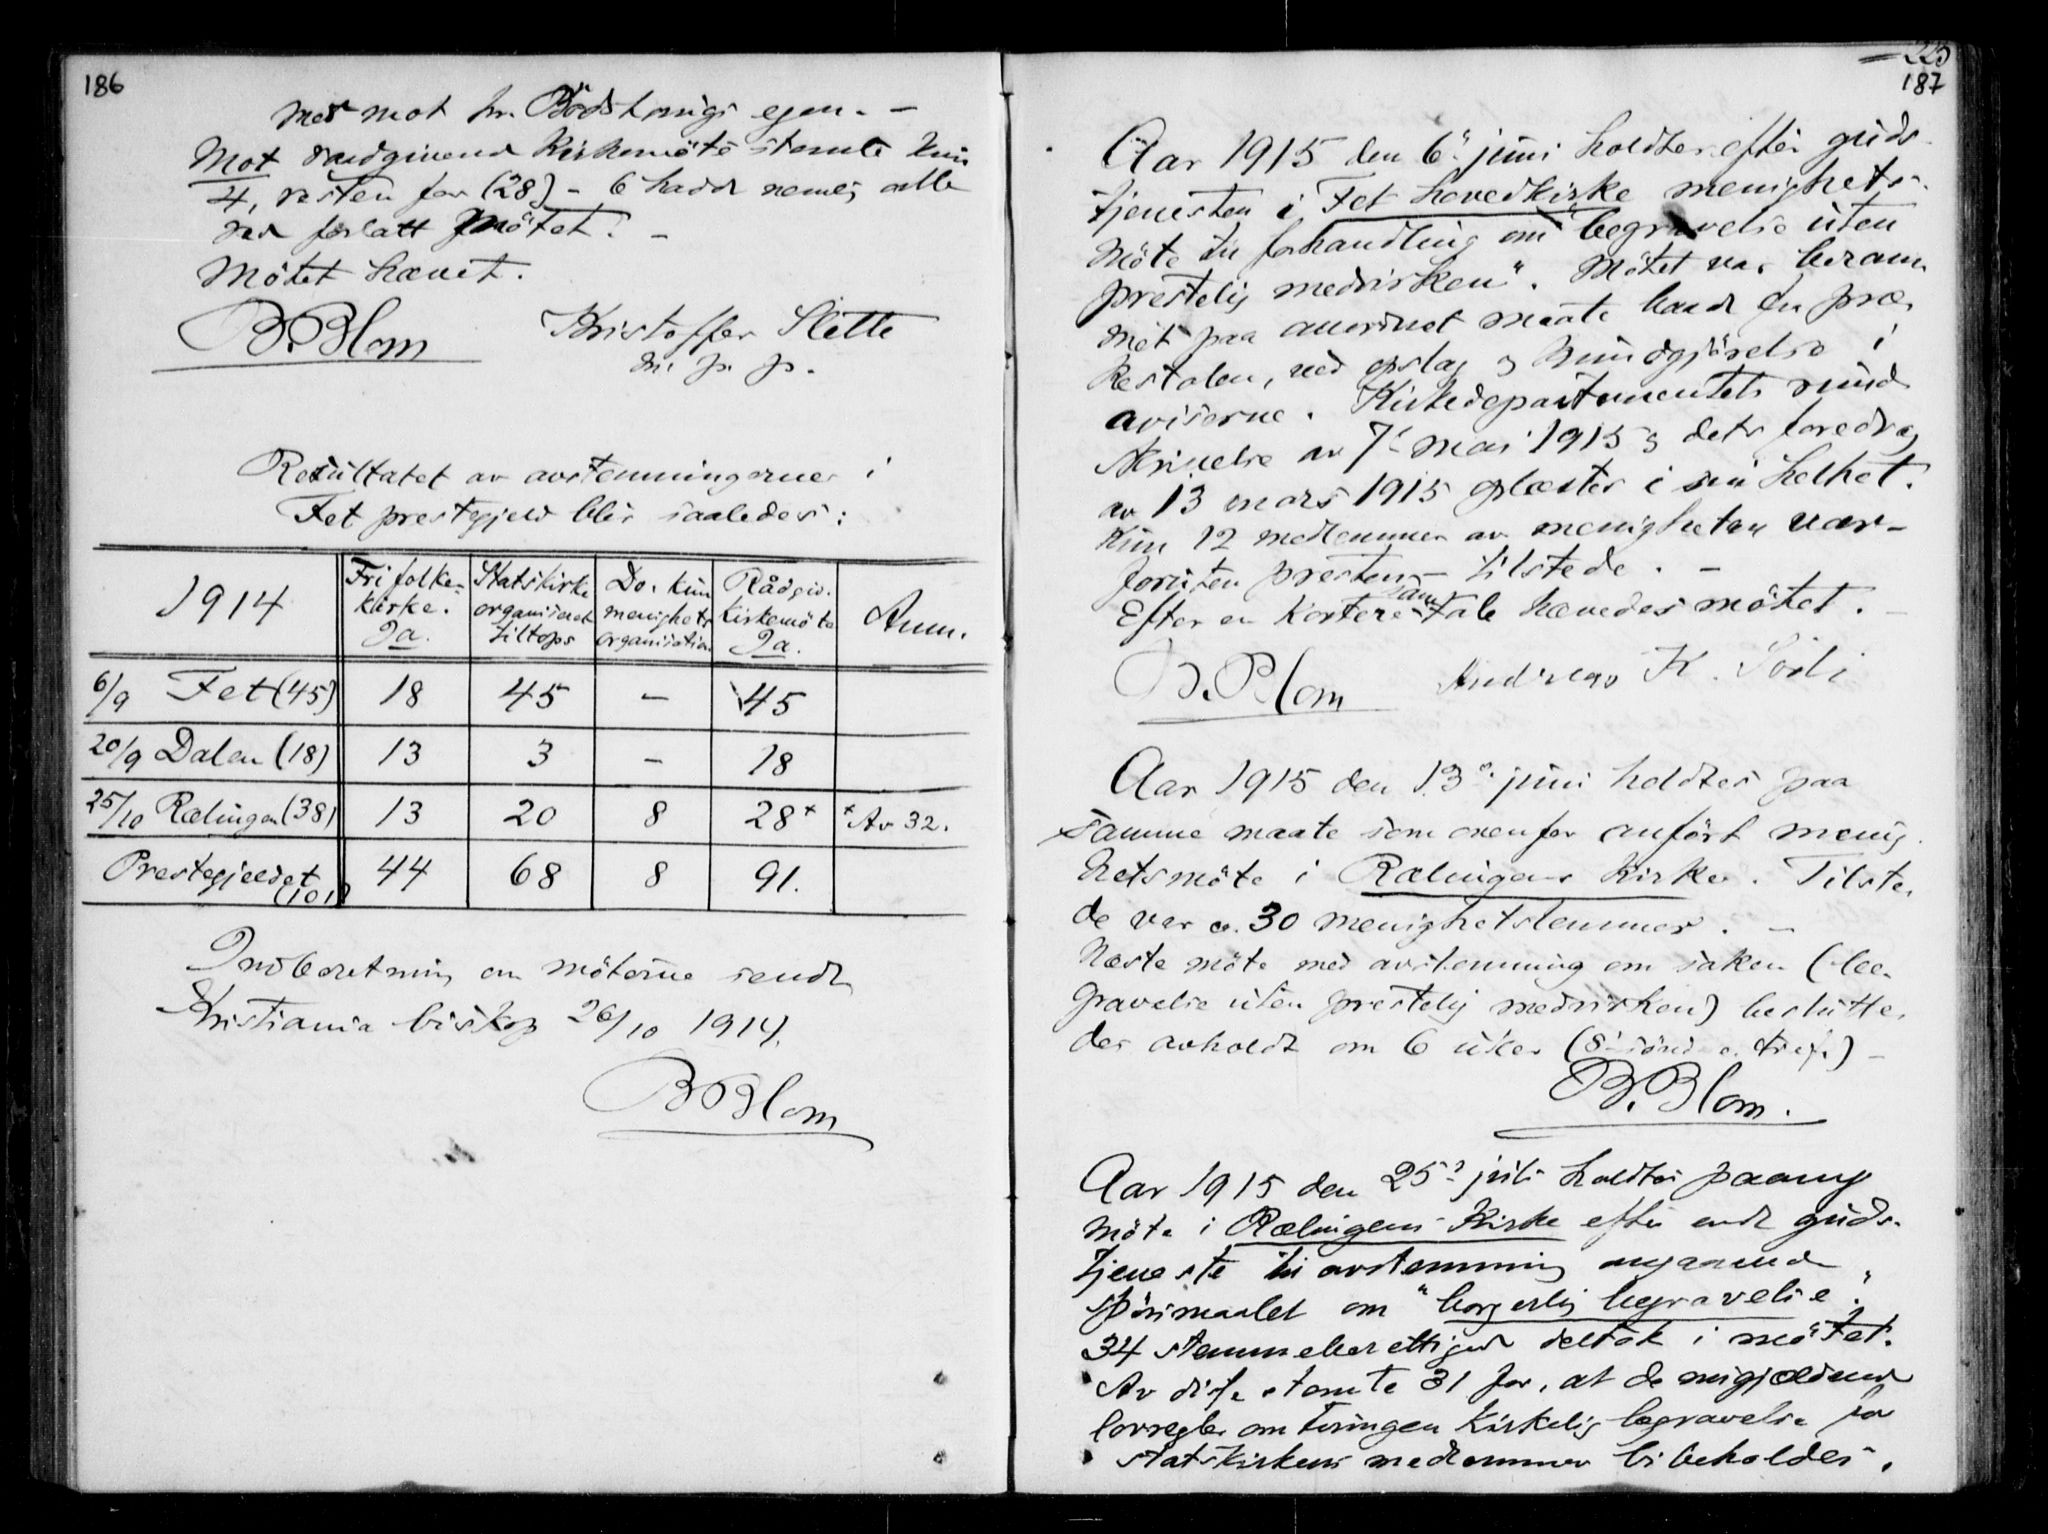 186
med mot hr. Bödshaugs egen. –
Mot raadgivend Kirkemöte stemte kun
4, resten for (28) – 6 hadde nemlig alle
rede forlatt mötet. –
Mötet hævet.
B. Blom Kristoffer Slette
m. p. p.
Resultatet av avstemningerne i
Fet prestegjeld blir saaledes:
1914 Fri folke-kirke. Ja. Statskirke organiseret tiltops Do. kun menighets organisation Rådgiv. Kirkemöte Ja. Anm.
6/9 Fet (45) 18 45 – 45
20/9 Dalen (18) 13 3 – 18
25/10 Rælingen (38) 13 20 8 28+ + Av 32.
Prestegjeldet (101) 44 68 8 91.
Indberetning om möterne sendt
Kristiania biskop 26/10 1914.
B Blom
225
187
Aar 1915 den 6te juni holdtes efter guds-
tjenesten i Fet hovedkirke menighets-
möte til forhandling om "begravelse uten
prestelig medvirken". Mötet var beram-
met paa anordnet maate baade fra præ-
kestolen, ved opslag og kundgjörelse i
aviserne. Kirkedepartementets rund-
skrivelse av 7de mai 1915 og dets foredrag
av 13 mars 1915 oplæstes i sin helhet.
Kun 12 medlemmer av menigheten var –
foruten presten – tilstede. –
Efter en kortere samtale hævedes mötet. –
B. Blom Andreas K. Sörli
Aar 1915 den 13de juni holdtes paa
samme maate som ovenfor anfört menig-
hetsmöte i Rælingens Kirke. Tilste-
de var ca. 30 menighetslemmer. –
Næste möte med avstemning om saken (be-
gravelse uten prestelig medvirken) beslutte-
des avholdt om 6 uker (8de sönd. e. tref.) –
B. Blom.
Aar 1915 den 25de juli holdtes paany
möte i Rælingens Kirke efter endt guds-
tjeneste til avstemning angaaende
spörsmaalet om "borgerlig begravelse".
34 stemmeberettigede deltok i mötet.
Av disse stemte 31 for, at de nugjældende
lovregler om tvungen kirkelig begravelse for
statskirkens medlemmer bibeholdes.